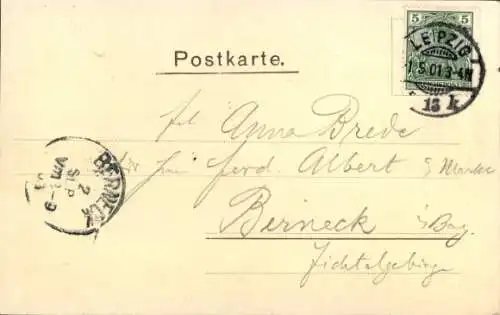 5 5
LEIPZIG
1.9.01 3-4N
13 k
Postkarte.
Frl Anna Brede
Ferd. Albert
Berneck i/ Bay.
Fichtelgebirge
BERNECK
2
SEP
VM 8-9